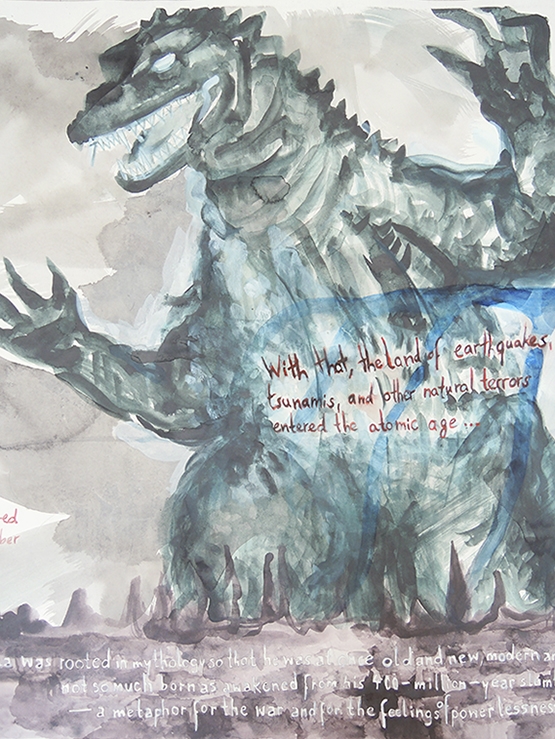 With that, the land of earthquakes,
tsunamis, and other natural terrors
entered the atomic age...
ed
ber
a was rooted in mythology so that he was at once old and new, modern an
not so much born as awakened from his 400-million-year slum
— a metaphor for the war and for the feelings of powerlessness